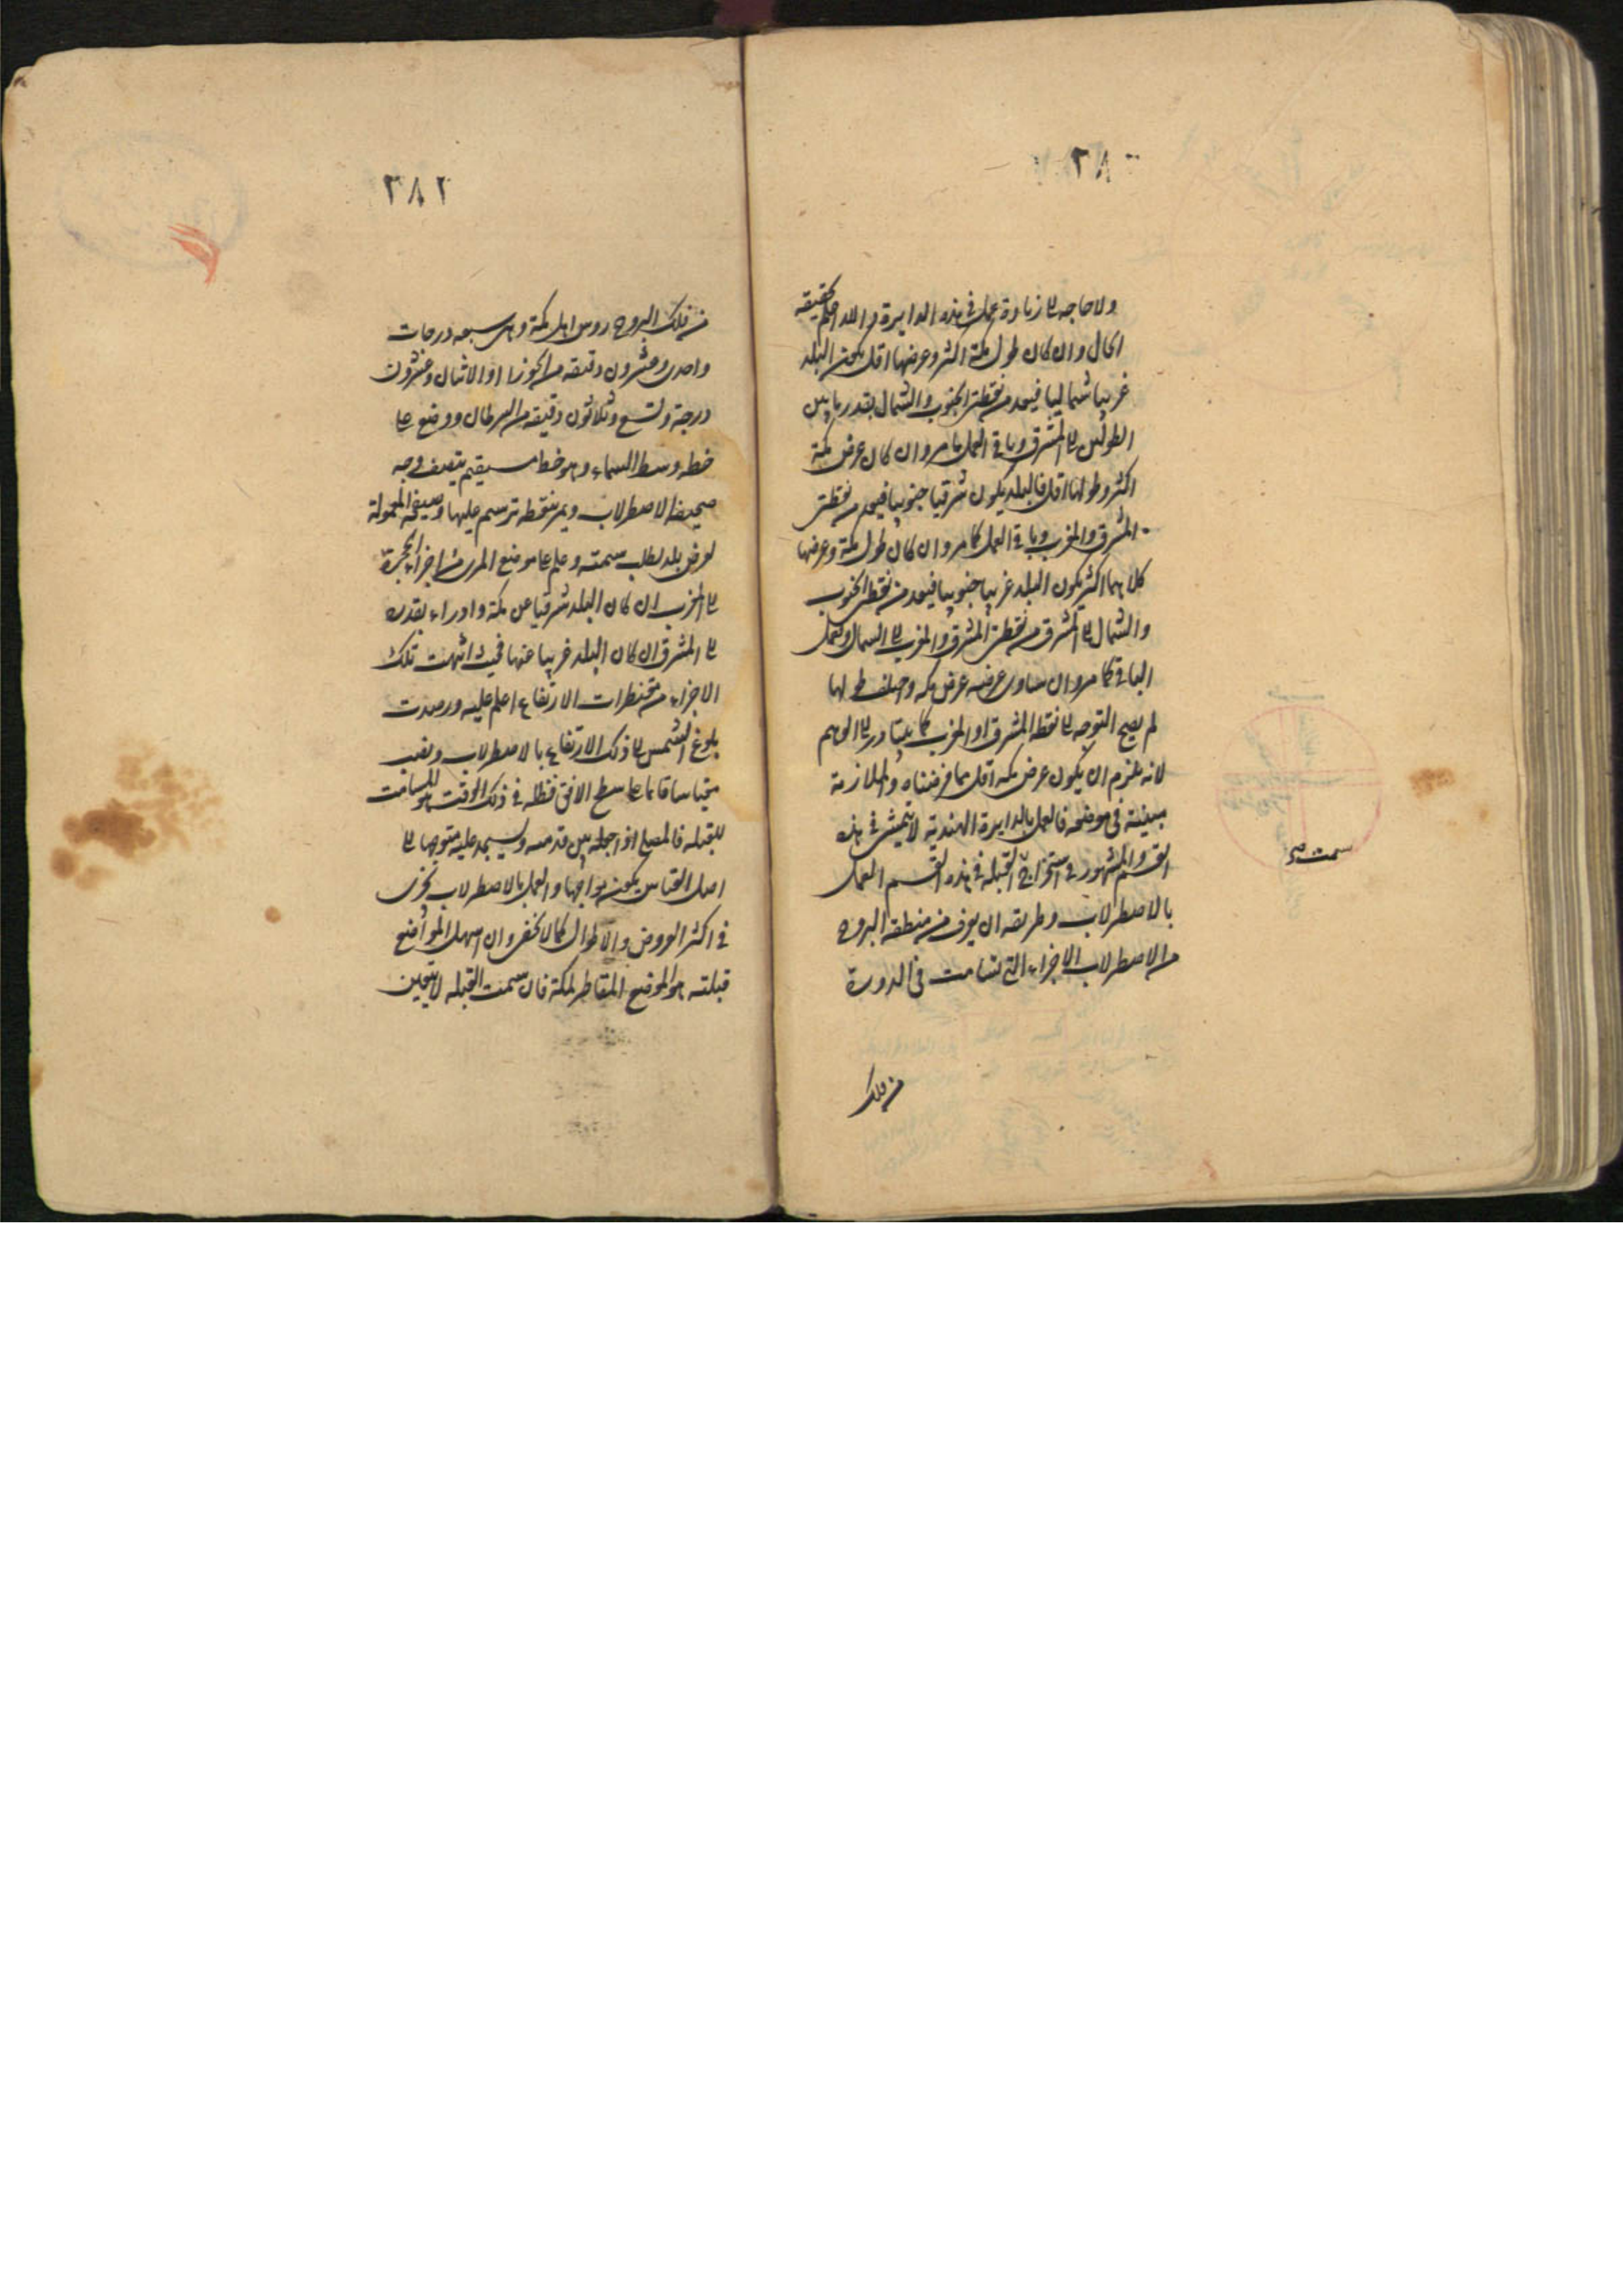 ٢٨٠
ولا حاجه الى زيادة عمل فى هذه الدايرة والله اعلم بحقيقه
الحال وان كان طول مكة اكثر وعرضها اقل يكون البلد
غربيا شماليا فيعد من نقطتى الجنوب والشمال بقدر ما بين
الطولين الى المشرق وباقى العمل كما مر وان كان عرض مكة
اكثر وطولها اقل فالبلد يكون شرقيا جنوبيا فيعد من نقطتى
المشرق والمغرب وباقى العمل كما مر وان كان طول مكة وعرضها
كلاهما اكثر يكون البلد غربيا جنوبيا فيعد من نقطتى الجنوب
والشمال الى المشرق من نقطتى المشرق والمغرب الى الشمال ويعمل
الباقى كما مر وان ساوى عرضه عرض مكه واختلف طولها
لم يصح التوجه الى نقطه المشرق او المغرب كما يتبادر الى الوهم
لانه يلزم ان يكون عرض مكه اقل مما فرضناه والملازمة
مبينة فى موضعه فالعمل بالدايرة الهندية لا يتمشى فى هذه
القسم والمشهور فى استخراج القبله فى هذه القسم العمل
بالاصطرلاب وطريقه ان يعرف من منطقه البروج
من الاصطرلاب الاجزاء التى تسامت فى الدورة
من فلك
سمت
٢٨٢
من فلك البروج روس اهل مكة وهى سبعه درجات
واحدى وعشرون دقيقه من الجوزا او الاثنان وعشرون
درجة وتسع وثلاثون دقيقه من السرطان ووضع على
خطه وسط السماء وهو خط مستقيم ينصف وجه
صحيفه الاصطرلاب ويمر بنقطه ترسم عليها وصيفحه المعمولة
لعرض بلد يطلب سمته وعلم على موضع المرى من اجزاء الحجرة
الى المغرب ان كان البلد شرقيا عن مكة وادراه بقدره
الى المشرق ان كان البلد غربيا عنها فحيث انتهت تلك
الاجزاء من مقنطرات الارتفاع اعلم عليه ورصدت
بلوغ الشمس الى ذلك الارتفاع بالاصطرلاب ونصب
مقياسا قائما على سطح الافق فظله فى ذلك الوقت هو المسامت
للقبله فالمصلى اذا جعله بين قدميه ويسجد عليه متوجها الى
اصل القياس يكون مواجها والعمل بالاصطرلاب يجرى
فى اكثر العروض والاطوال كما لا يخفى وان اسهل المواضع
قبلته هو الموضع المقاطر لمكة فان سمت القبله لا يتعين